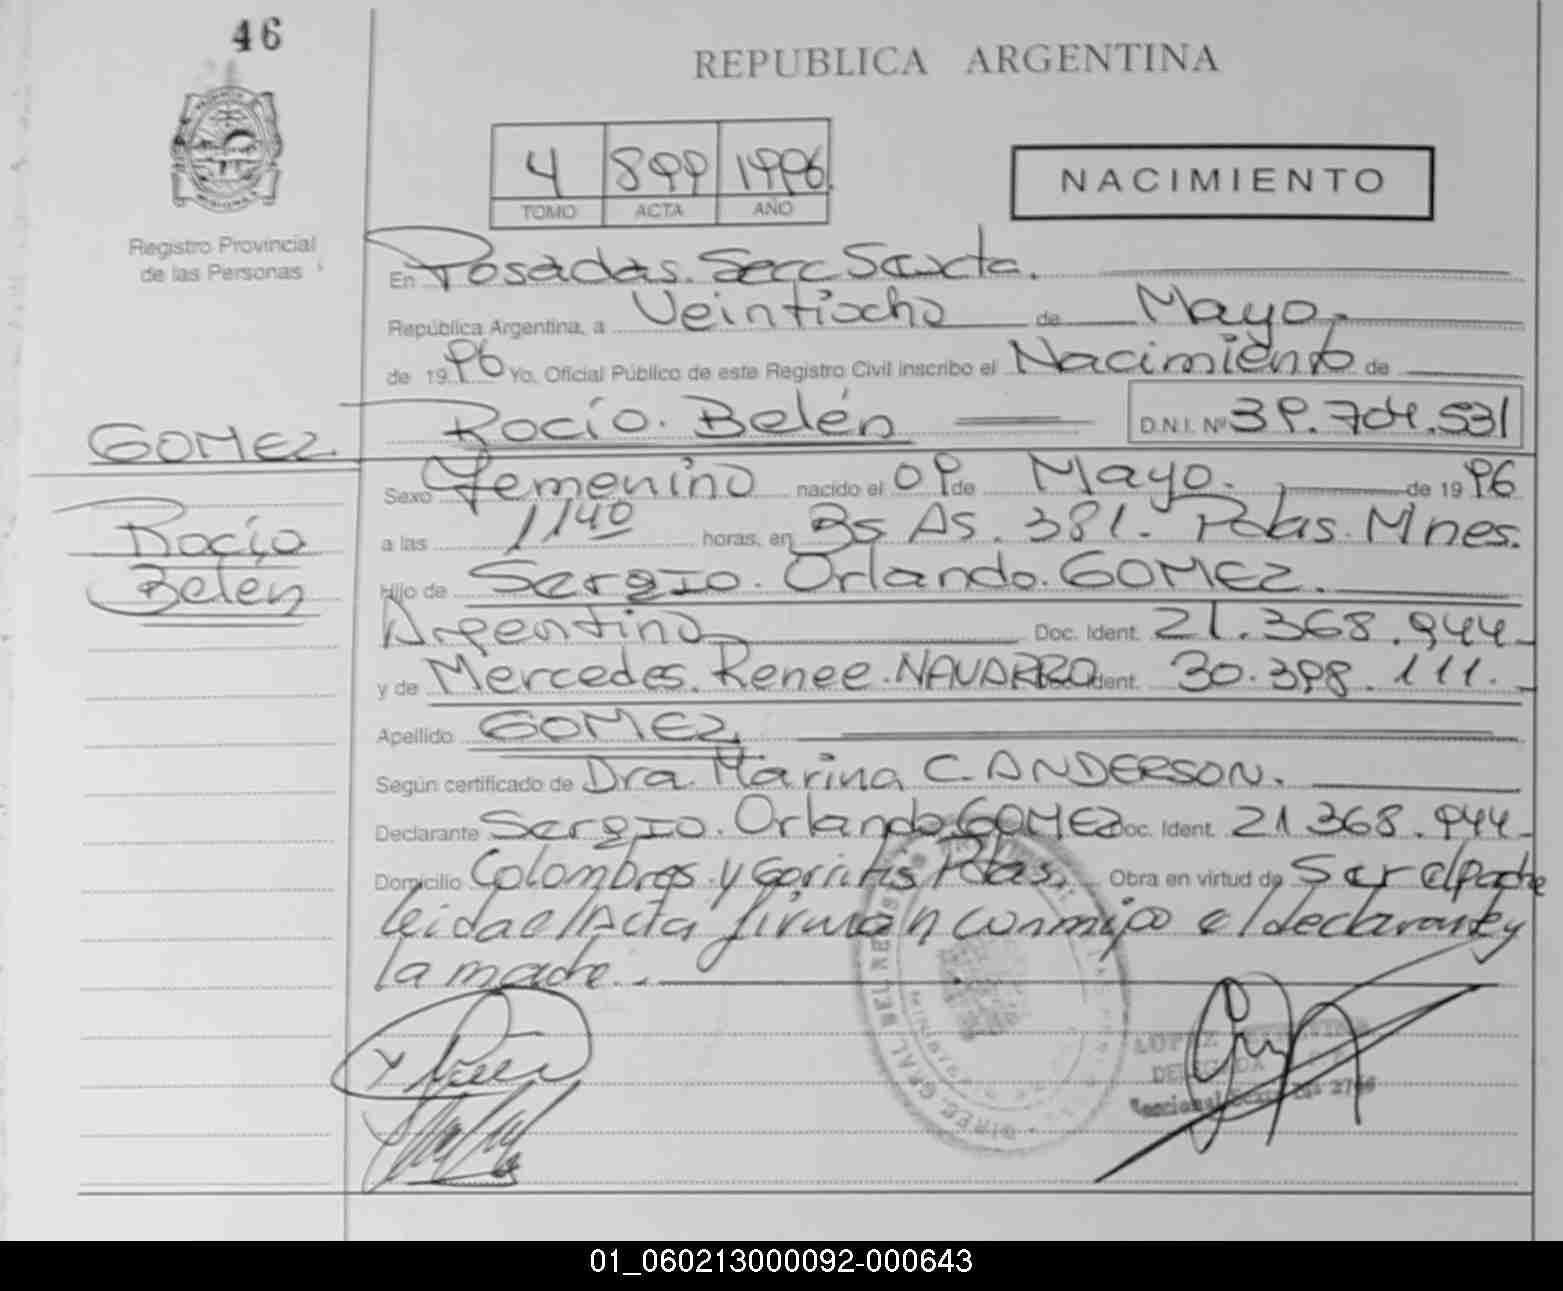 46
REPUBLICA ARGENTINA
4 899 1996
TOMO ACTA AÑO
NACIMIENTO
Registro Provincial
de las Personas
En Posadas. Secc Sexta.
República Argentina, a Veintiocho de Mayo.
de 1996 Yo, Oficial Público de este Registro Civil inscribo el Nacimiento de
GOMEZ Rocío. Belén D.N.I. Nº 39.704.531
Sexo Femenino nacido el 09 de Mayo. de 1996
Rocío
Belén
a las 1140 horas, en Bs As. 381. Pdas. Mnes.
Hijo de Sergio. Orlando. GOMEZ.
Argentino Doc. Ident. 21.368.944
y de Mercedes. Renee. NAVARRO Doc. Ident. 30.398.111.
Apellido GOMEZ
Según certificado de Dra. Marina C. ANDERSON.
Declarante Sergio. Orlando GOMEZ Doc. Ident. 21 368.944
Domicilio Colombres y Gorritis Pdas. Obra en virtud de Ser el padre
leida el Acta firman conmigo el declarante y
la madre.
DIREC. GRAL DEL REGISTRO
LOPEZ
Seccional Sexta
01_060213000092-000643